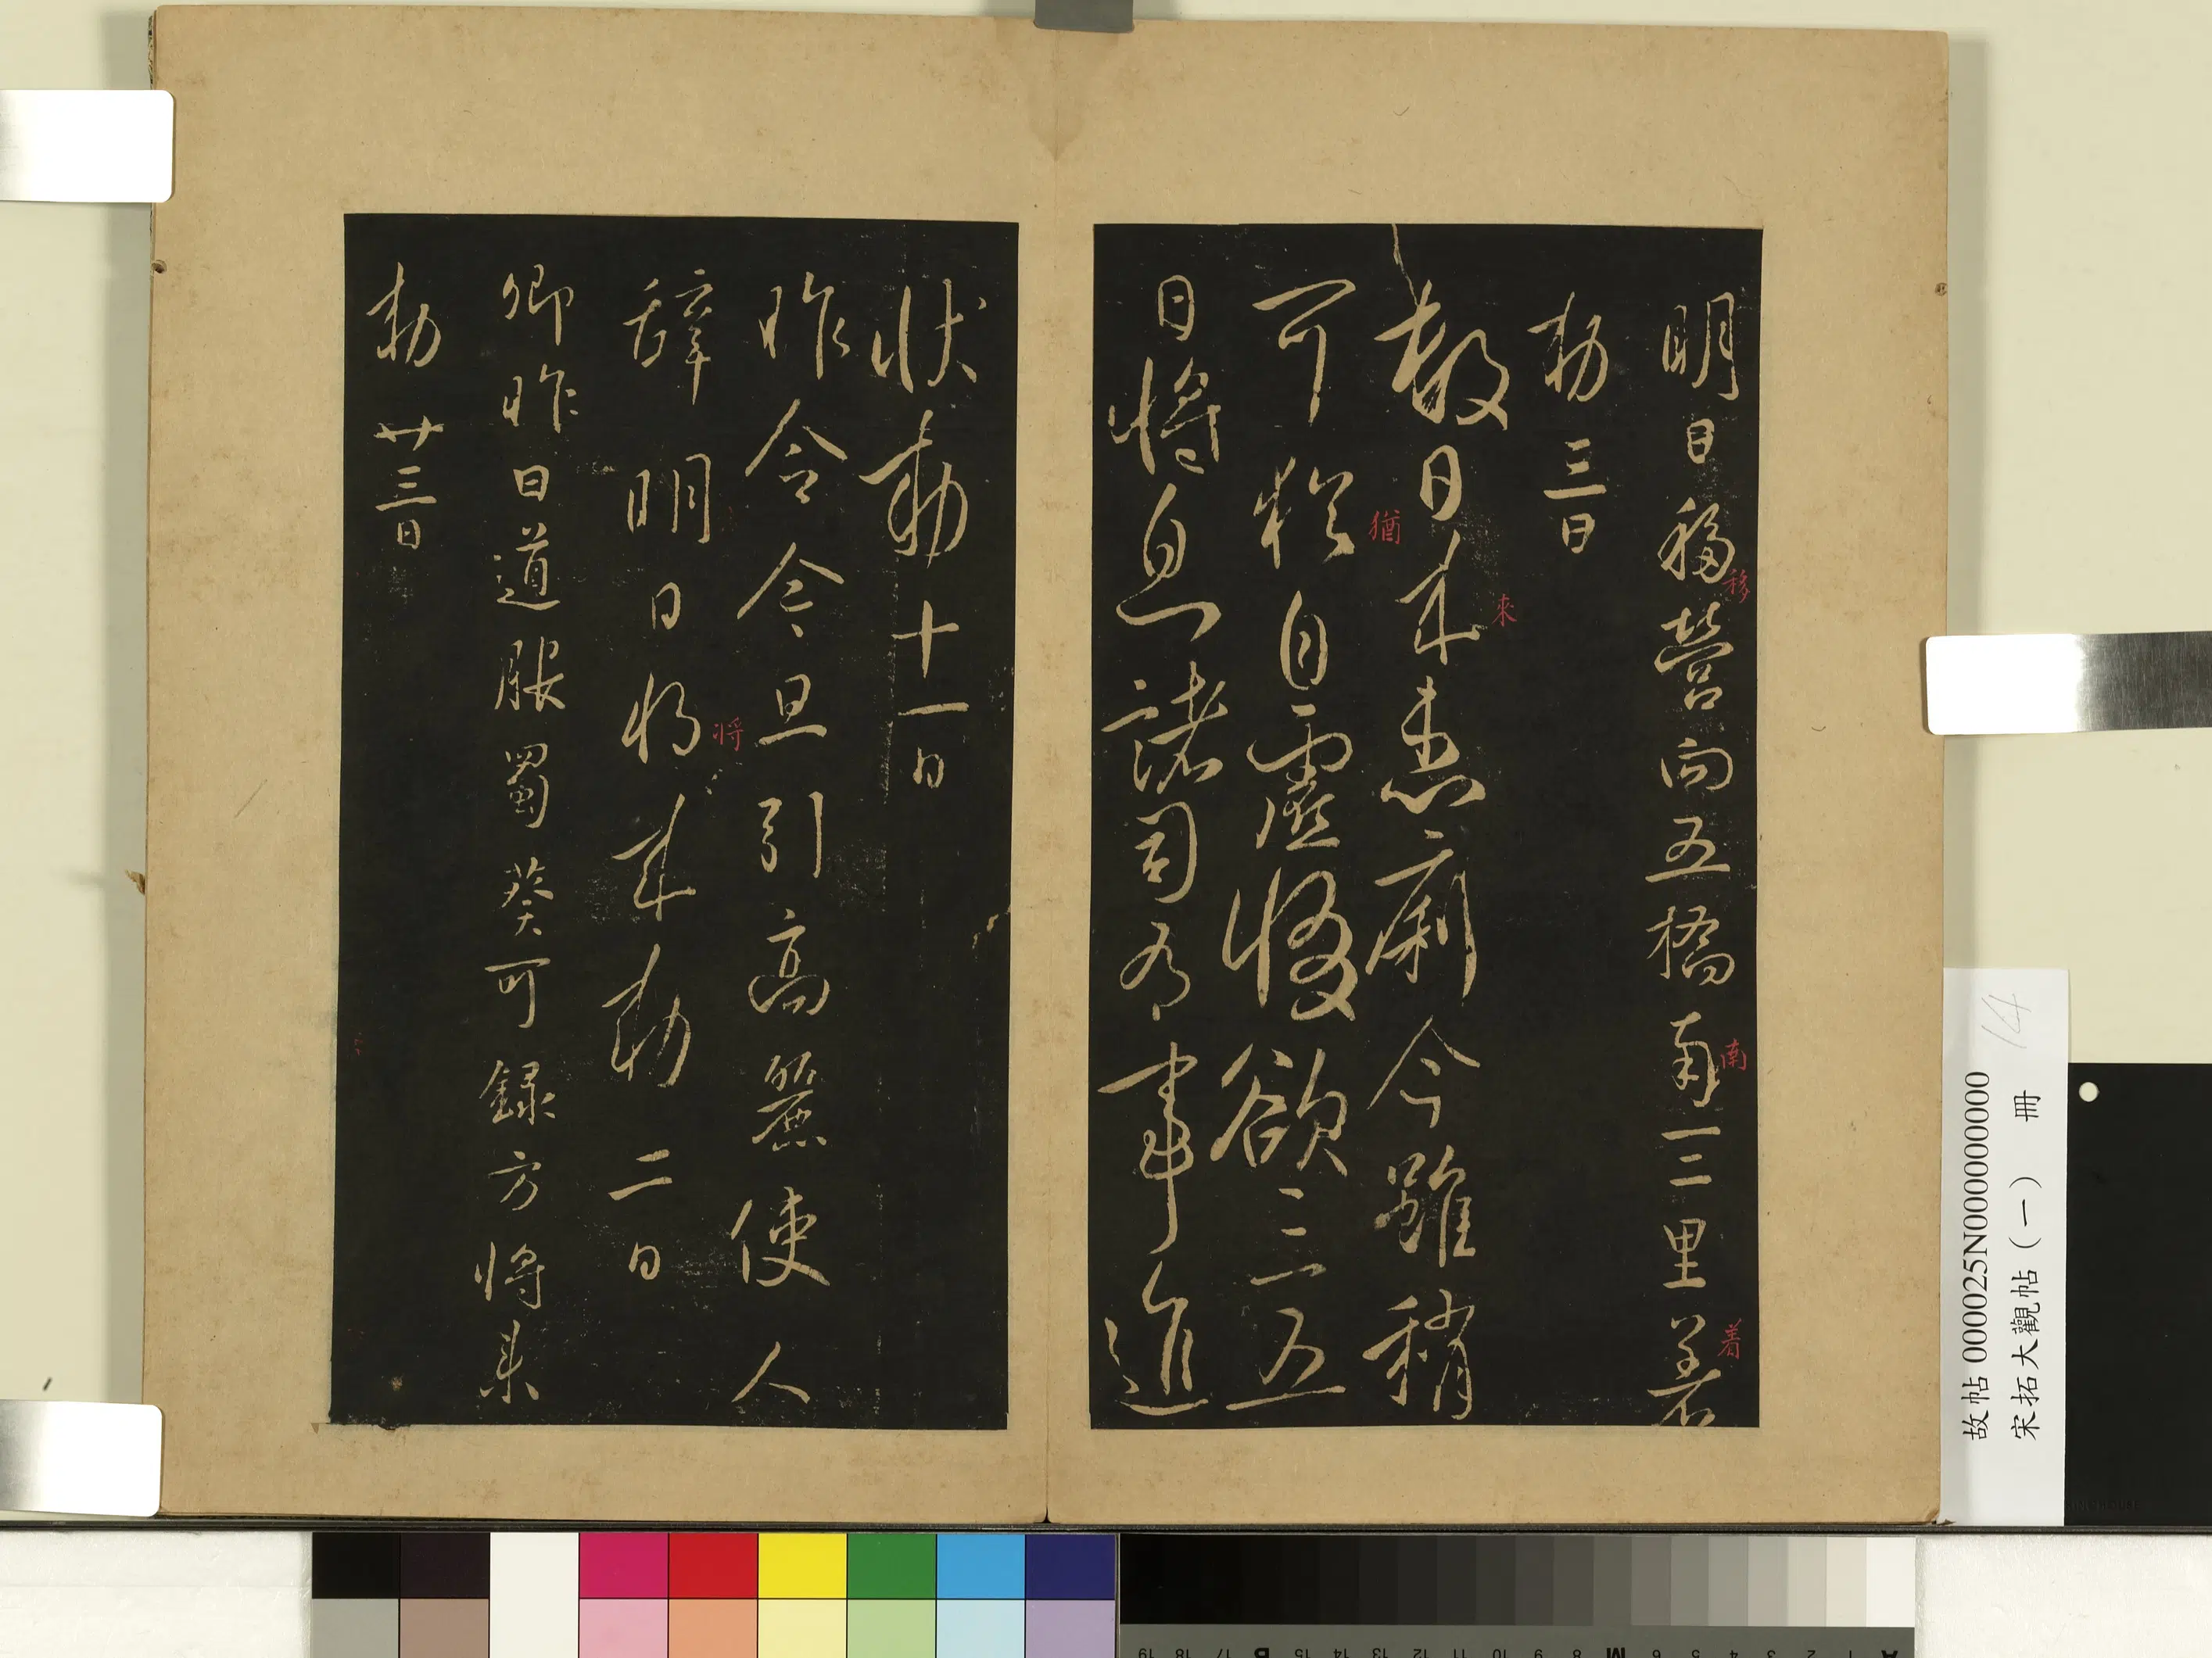 明日移營向五橋南三里著
移
南
着
勅 三日
數日來患痢今雖稍
來
可猶自虛惙欲三五
猶
日將息諸司有事進
狀勅十一日
昨令今旦引高麗使人
辭明日將來勅二日
将
卿昨日道服蜀葵可録方將来
勅 廿三日
故帖 000025N000000000
宋拓大觀帖（一） 冊
14